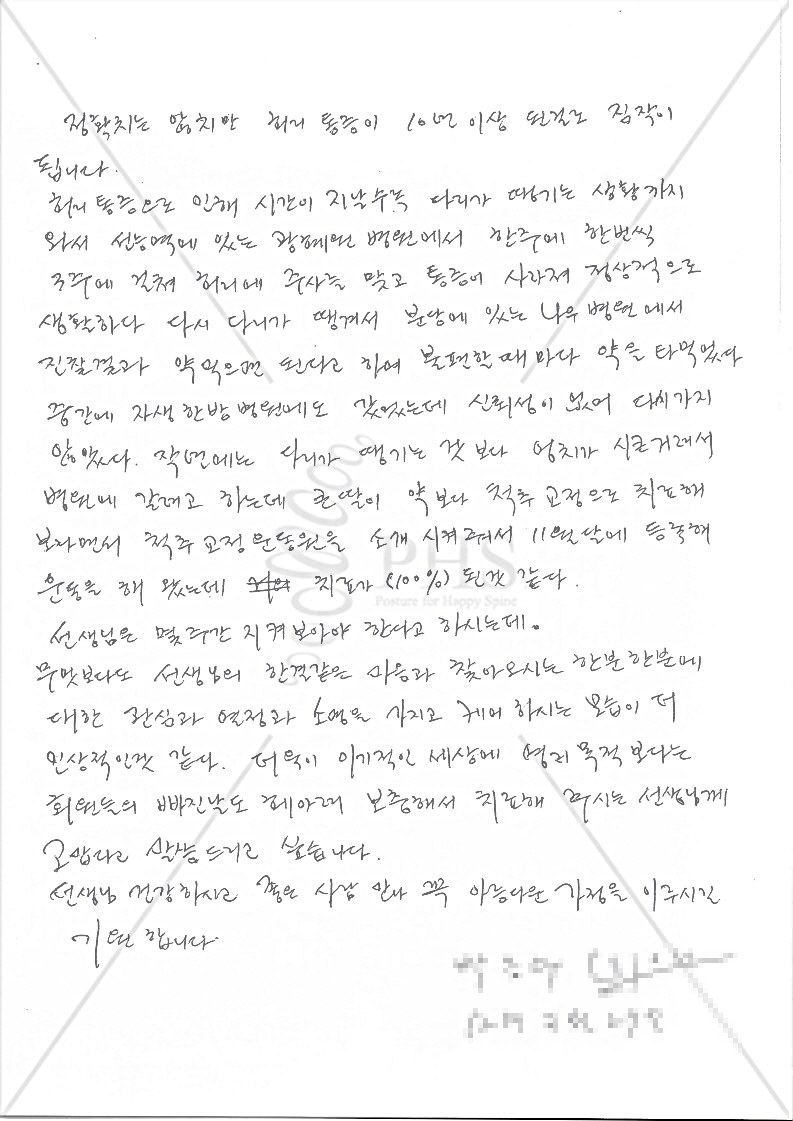 정확치는 않치만 허리 통증이 10년 이상 된걸로 짐작이
됩니다.
허리 통증으로 인해 시간이 지날수록 다리가 땡기는 상황까지
와서 선능역에 있는 광혜원 병원에서 한주에 한번씩
3주에 걸쳐 허리에 주사를 맞고 통증이 사라져 정상적으로
생활하다 다시 다리가 땡겨서 분당에 있는 나우병원에서
진찰결과 약먹으면 된다고 하여 불편할때마다 약을 타먹었다
중간에 자생한방병원에도 갔었는데 신뢰성이 없어 다시가지
않았다. 작년에는 다리가 땡기는 것 보다 엉치가 시큰거려서
병원에 갈려고 하는데 큰딸이 약보다 척추 교정으로 치료해
보라면서 척추교정운동원을 소개 시켜줘서 11월달에 등록해
운동을 해 왔는데 치료가 (100%) 된것 같다.
선생님은 몇주간 지켜보아야 한다고 하시는데.
무엇보다도 선생님의 한결같은 마음과 찾아오시는 한분한분에
대한 관심과 열정과 소명을 가지고 케어 하시는 모습이 더
인상적인것 같다. 더욱이 이기적인 세상에 영리 목적보다는
회원들의 빠진날도 헤아려 보충해서 치료해 주시는 선생님께
고맙다고 말씀드리고 싶습니다.
선생님 건강하시고 좋은 사람 만나 꼭 아름다운 가정을 이루시길
기원 합니다.
PHS
Posture for Happy Spine